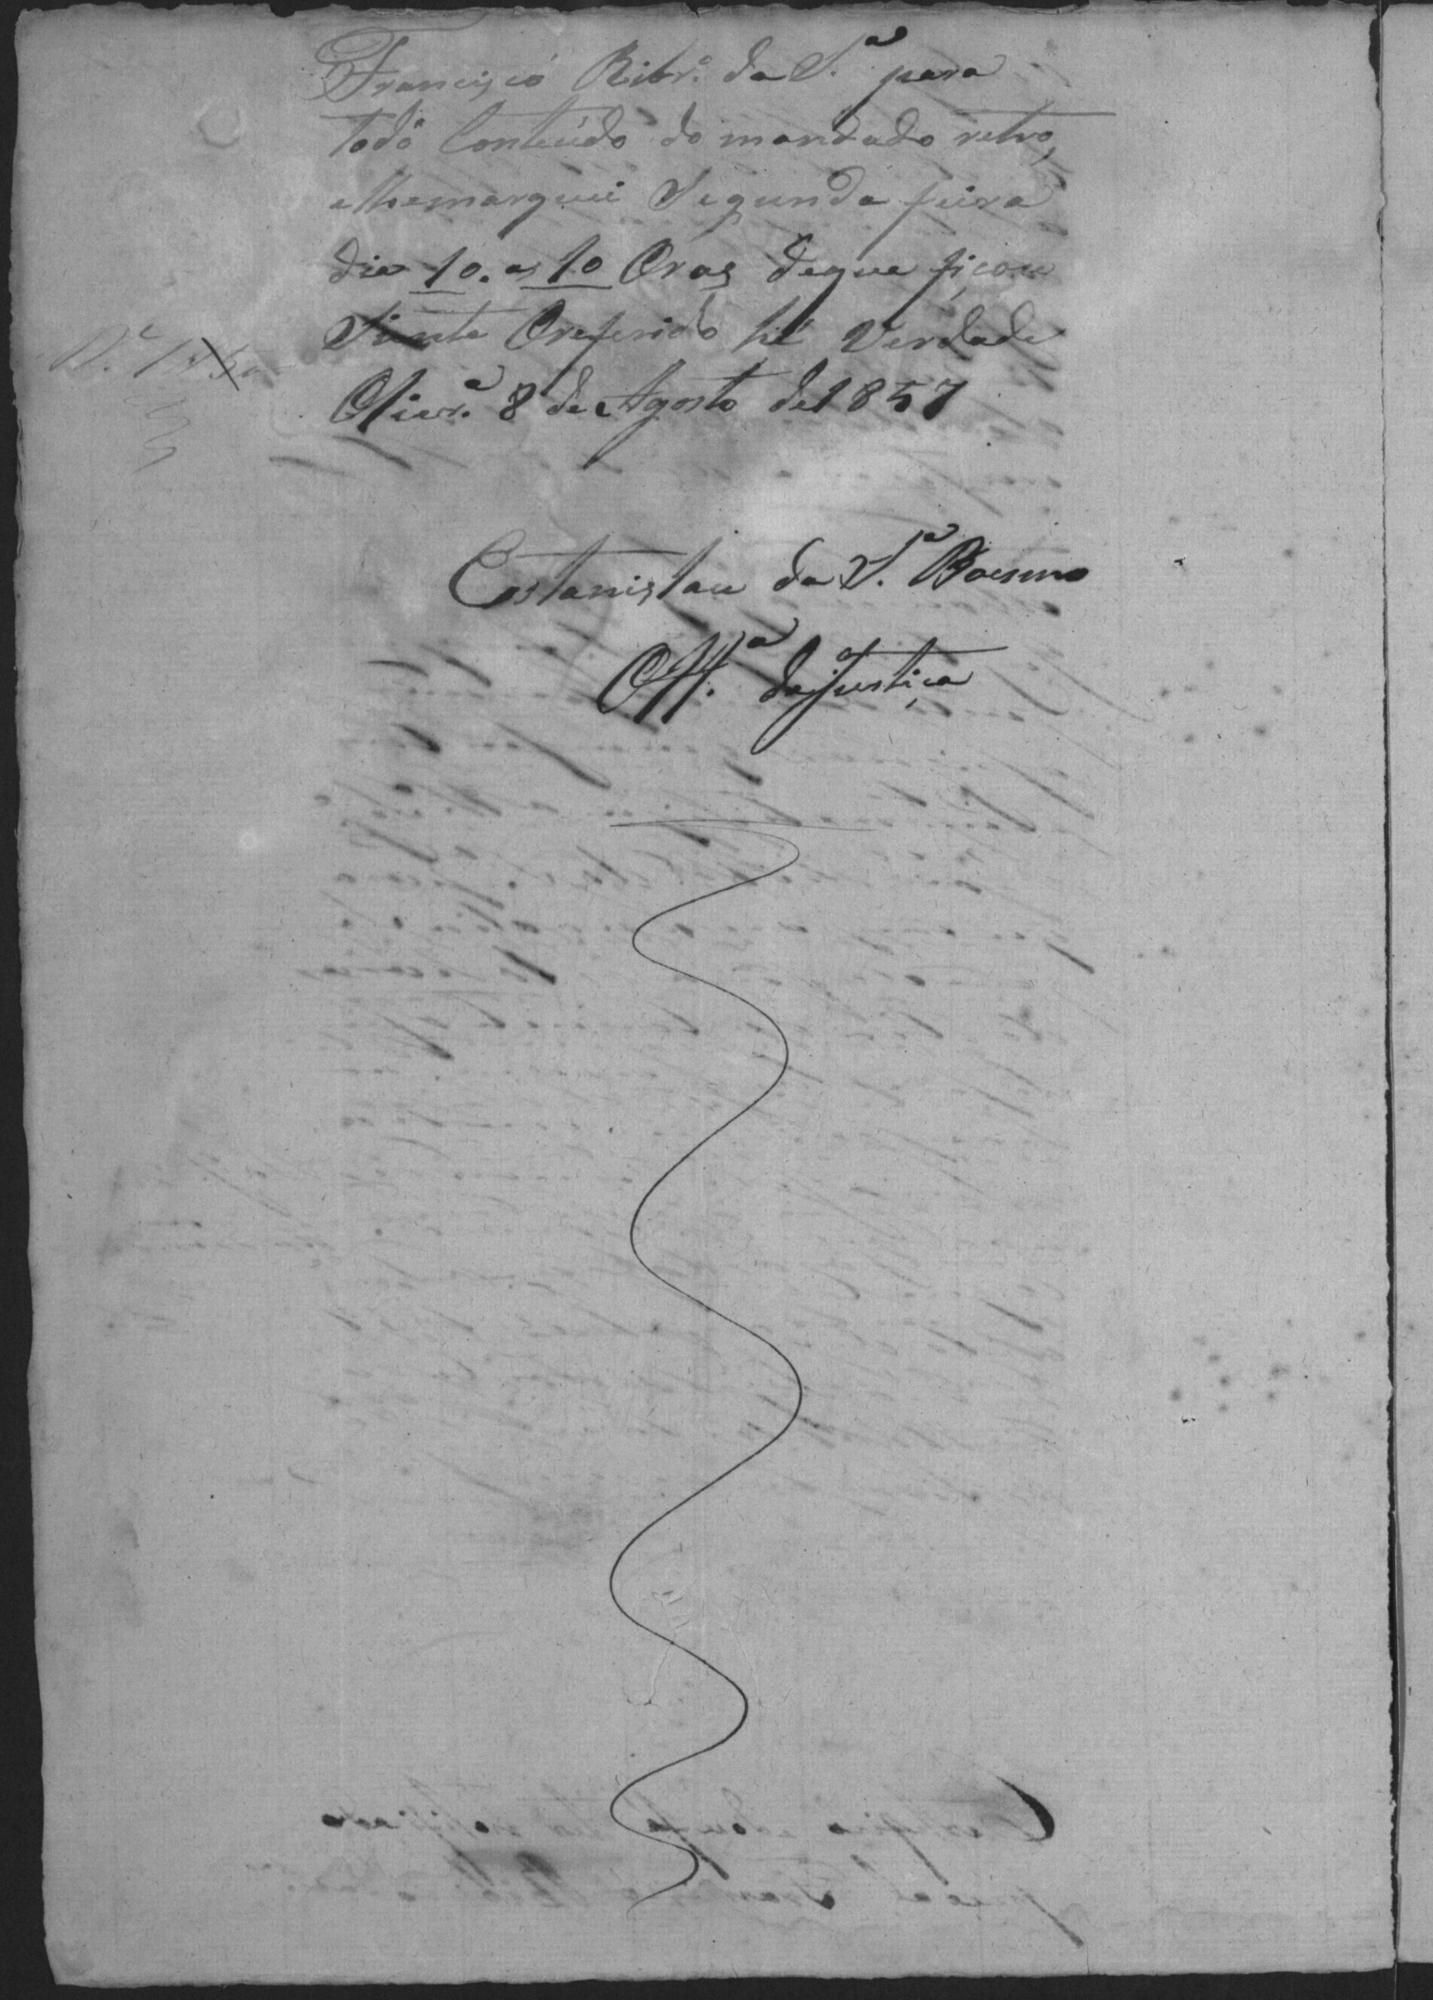 Francisco Ribr.º da S.ª para
todo Conteúdo do mandado retro,
elhemarquei Segunda feira
dia 10. as 10 Oras deque ficou
Siente Oreferido hé Verdade
Olivr.ª 8 de Agosto de 1857
Estanislau da S.ª
Off.ª dajustiça